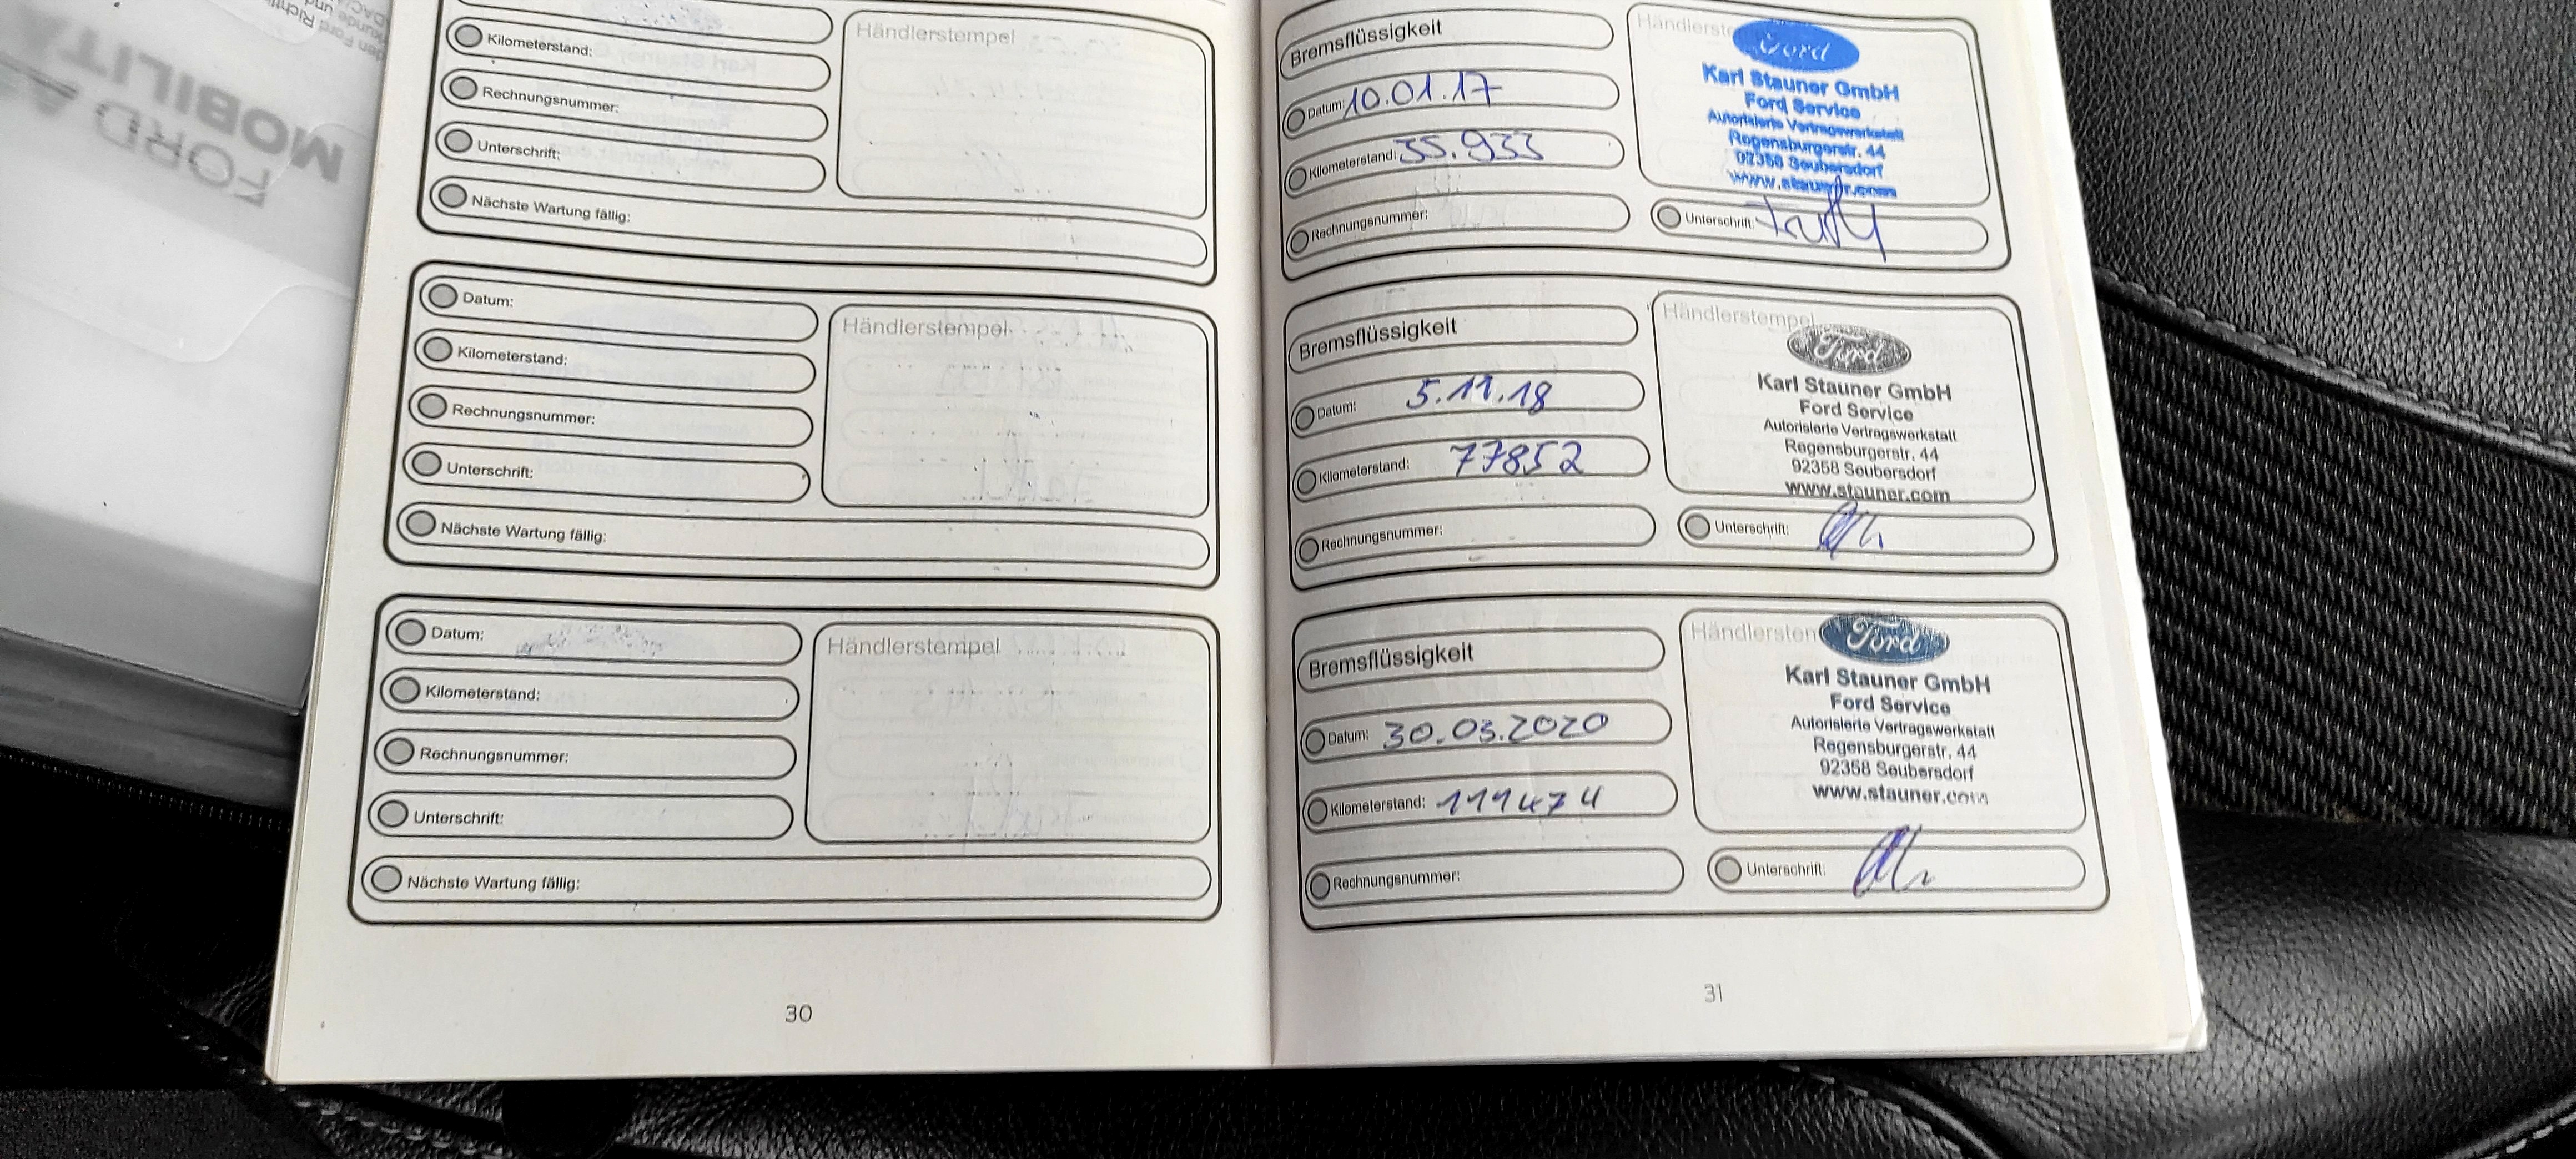 MOBILITÄ
FORD A
Kilometerstand:
Rechnungsnummer:
Unterschrift:
Nächste Wartung fällig:
Händlerstempel
Datum:
Kilometerstand:
Rechnungsnummer:
Unterschrift:
Nächste Wartung fällig:
Händlerstempel
Datum:
Kilometerstand:
Rechnungsnummer:
Unterschrift:
Nächste Wartung fällig:
Händlerstempel
30
Bremsflüssigkeit
Datum: 10.01.17
Kilometerstand: 35.933
Rechnungsnummer:
Händlerste
Ford
Karl Stauner GmbH
Ford Service
Autorisierte Vertragswerkstatt
Regensburgerstr. 44
92358 Seubersdorf
www.stauner.com
Unterschrift:
Bremsflüssigkeit
Datum: 5.11.18
Kilometerstand: 77852
Rechnungsnummer:
Händlerstempel
Ford
Karl Stauner GmbH
Ford Service
Autorisierte Vertragswerkstatt
Regensburgerstr. 44
92358 Seubersdorf
www.stauner.com
Unterschrift:
Bremsflüssigkeit
Datum: 30.03.2020
Kilometerstand: 111474
Rechnungsnummer:
Händlersten
Ford
Karl Stauner GmbH
Ford Service
Autorisierte Vertragswerkstatt
Regensburgerstr. 44
92358 Seubersdorf
www.stauner.com
Unterschrift:
31